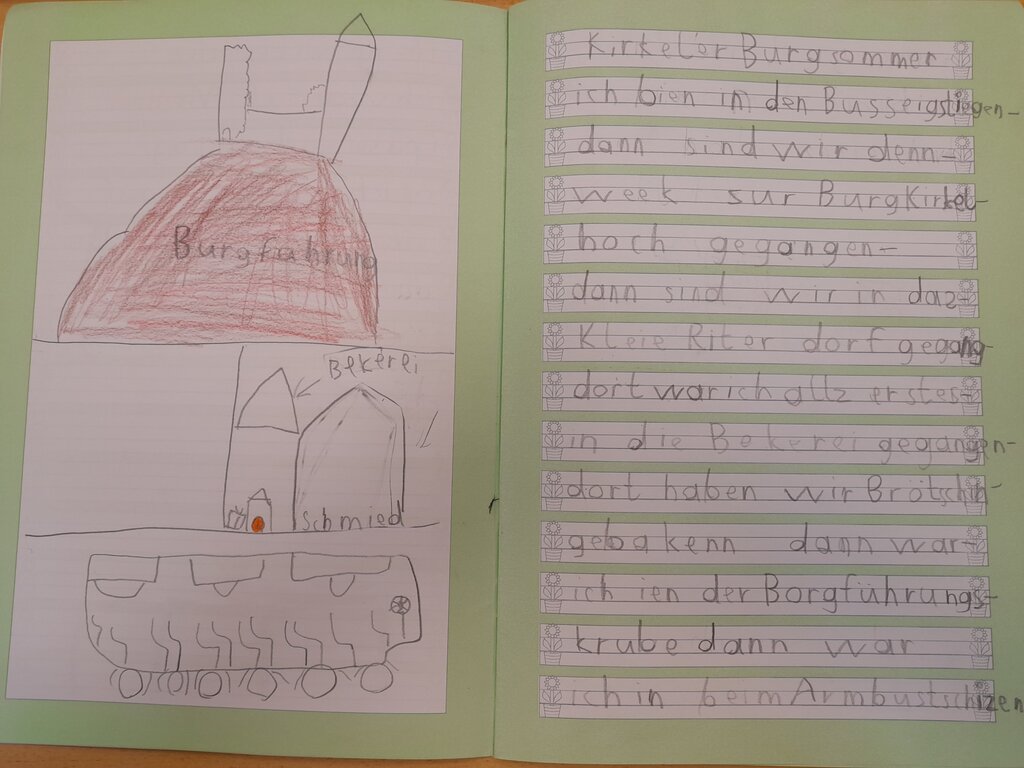 Burgführung
Bekerei
Schmied
Kirkeler Burgsommer
ich bien in den Busseigstiegen-
dann sind wir denn-
week sur Burg Kirkel-
hoch gegangen-
dann sind wir in daz-
Kleie Riter dorf gegang-
dort war ich altz erstes-
in die Bekerei gegangen-
dort haben wir Brötschin-
gebakenn dann war-
ich ien der Borgführungs-
krube dann war
ich in beim Armbustschizen